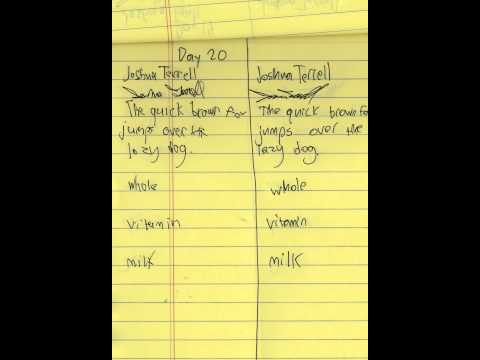 Day 20
Joshua Terrell
The quick brown fox
jumps over the
lazy dog.
whole
vitamin
milk
Joshua Terrell
The quick brown fo
jumps over the
lazy dog.
whole
vitamin
milk